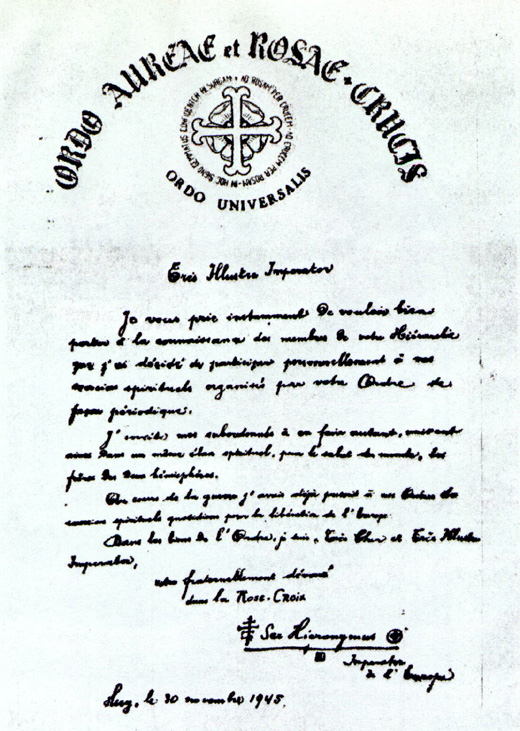 ORDO AUREAE et ROSAE + CRUCIS
AD ROSAM PER CRUCEM • AD CRUCEM PER ROSAM • IN HOC SIGNO GEMMATUS RESURGAM
ORDO UNIVERSALIS
Très Illustre Imperator
Je vous prie instamment de vouloir bien
porter à la connaissance des membres de votre Hiérarchie
que j'ai décidé de participer personnellement à vos
exercices spirituels organisés par votre Ordre de
façon périodique.
J'invite mes subordonnés à en faire autant, unissant
ainsi dans un même élan spirituel, pour le salut du monde, les
frères des deux hémisphères.
Au cours de la guerre j'avais déjà prescrit à nos Ordres des
exercices spirituels quotidiens pour la libération de l'Europe.
Dans les liens de l'Ordre, je suis, Très Cher et Très Illustre
Imperator,
votre fraternellement dévoué
dans la Rose-Croix
Sar Hieronymus
Imperator
de l'Europe
le 20 novembre 1945.